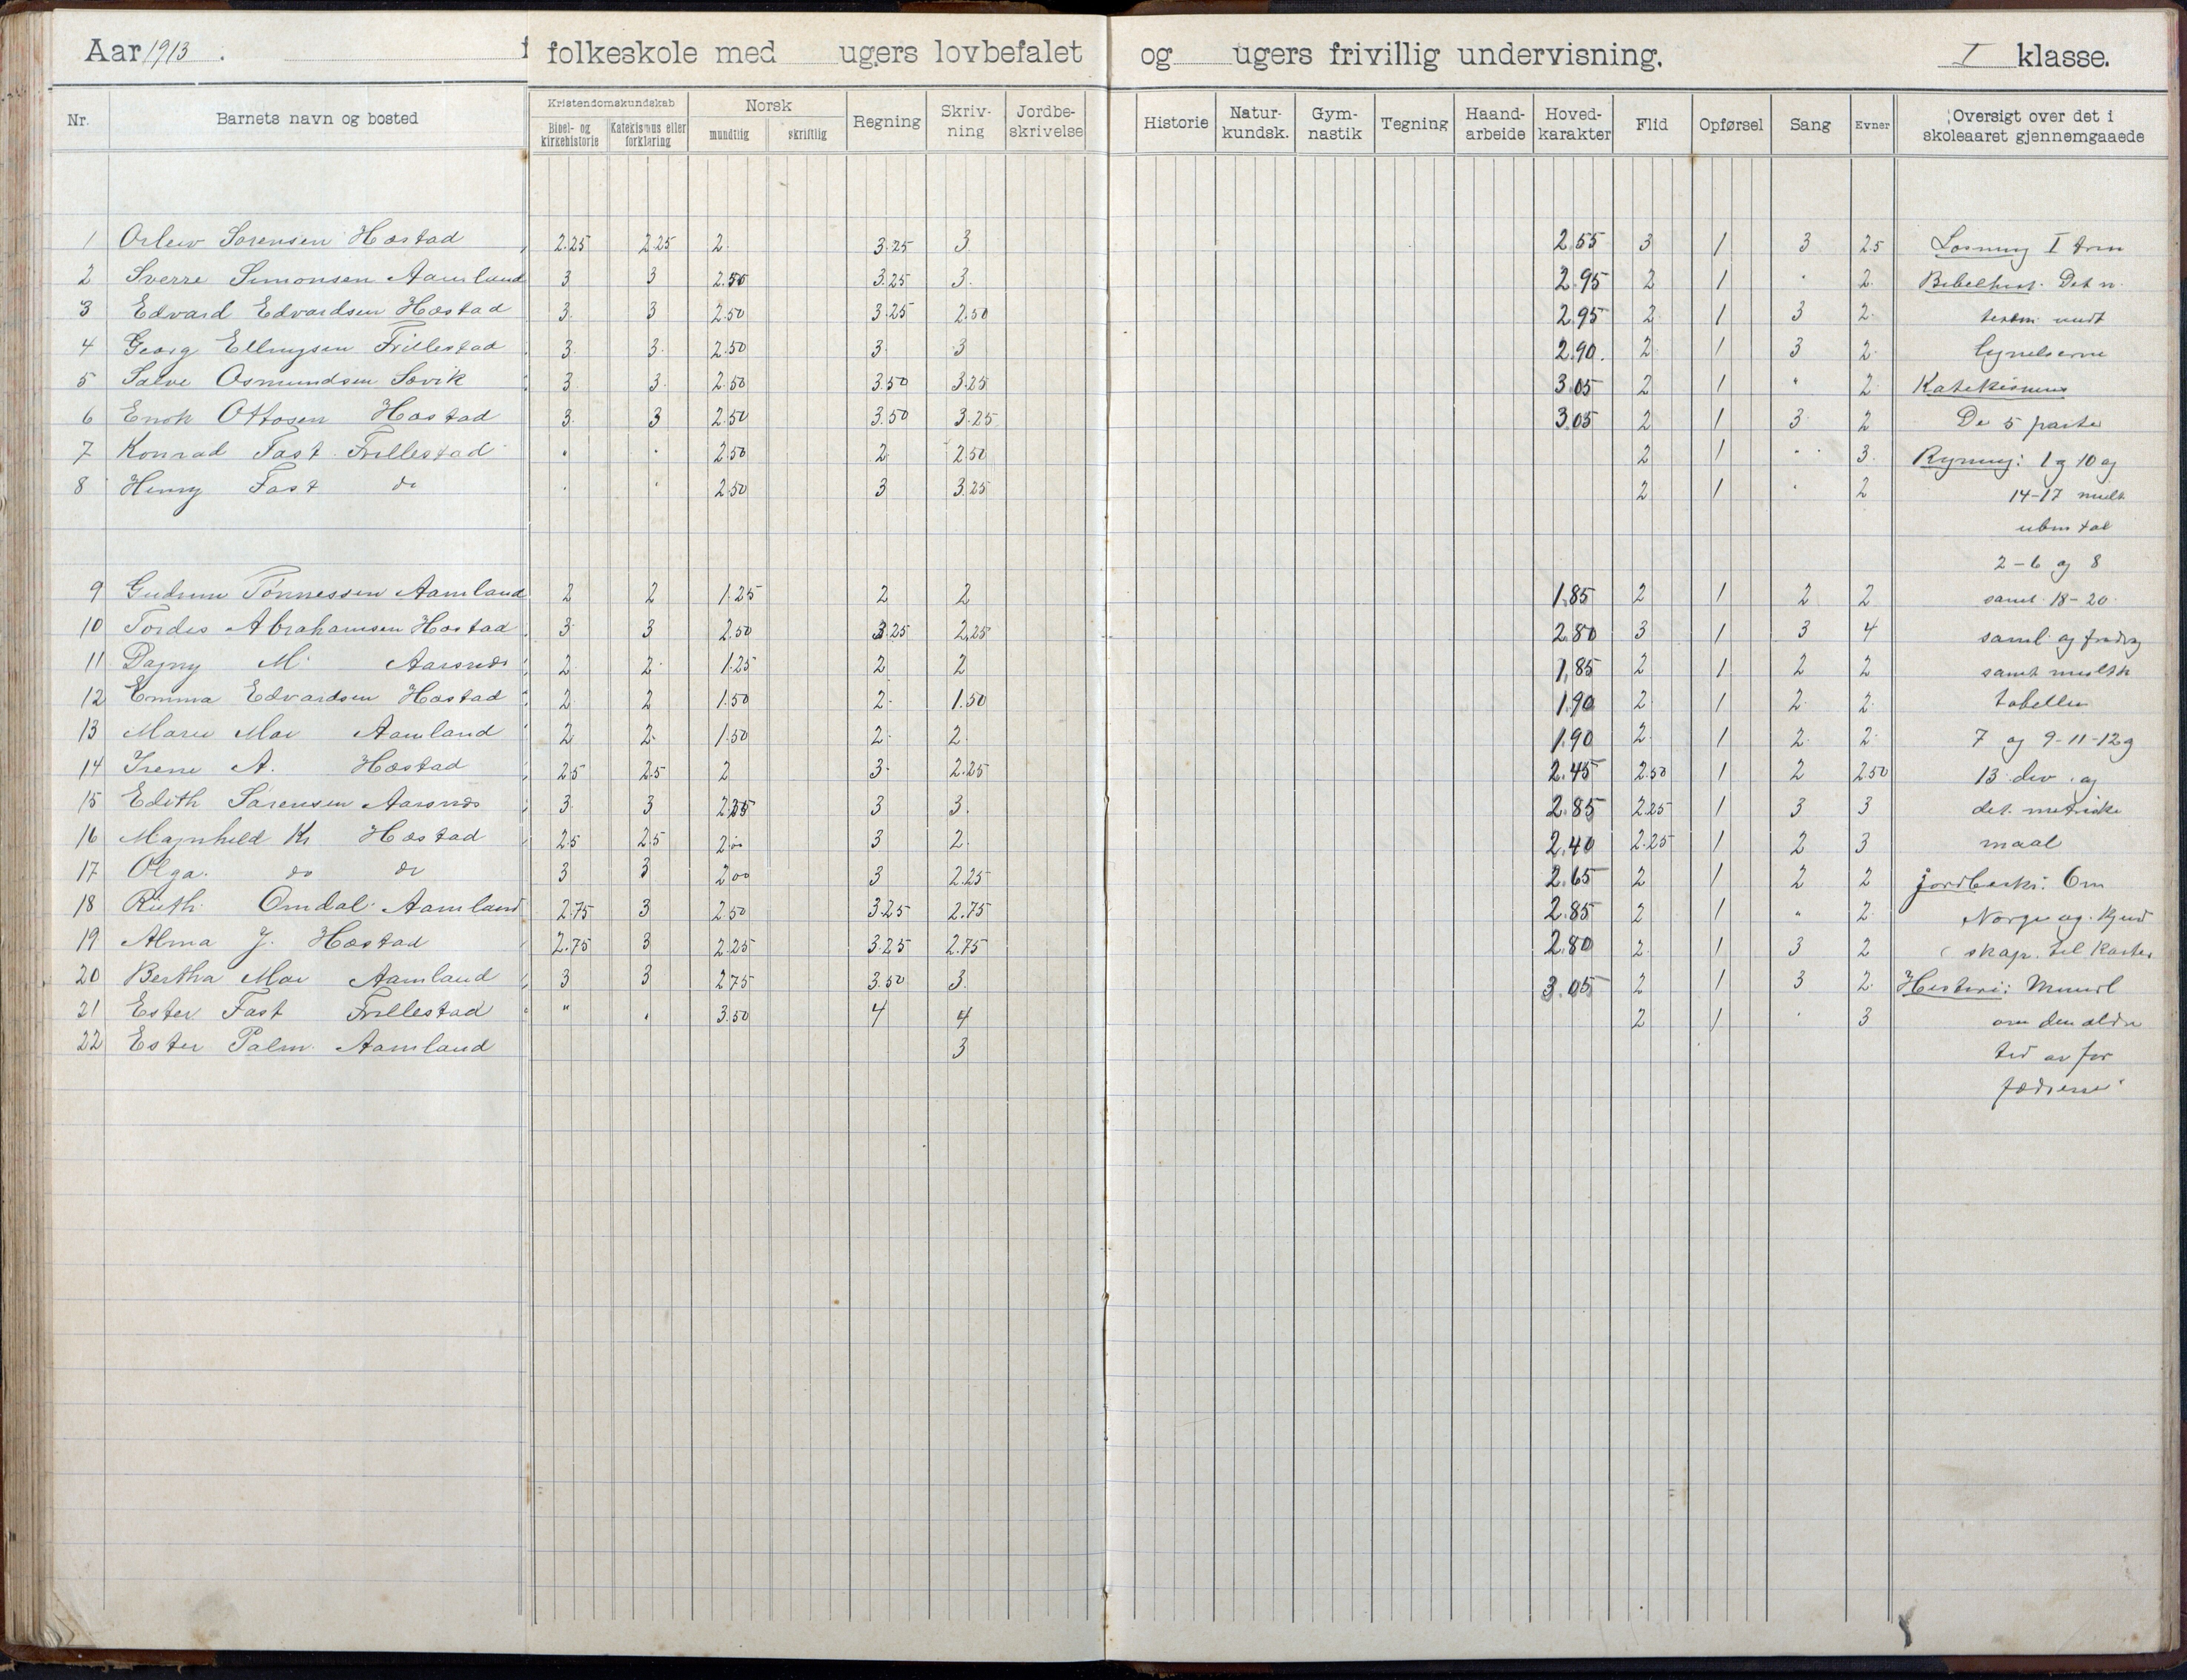 Aar 1913. folkeskole med ugers lovbefalet og ugers frivillig undervisning. I klasse.
Nr. Barnets navn og bosted Kristendomskundskab Bibel- og kirkehistorie Katekismus eller forklaring Norsk mundtlig skriftlig Regning Skriv-ning Jordbe-skrivelse Historie Natur-kundsk. Gym-nastik Tegning Haand-arbeide Hoved-karakter Flid Opførsel Sang Evner Oversigt over det i skoleaaret gjennemgaaede
1 Sørensen Hæstad 2.25 2.25 2. 3.25 3 2.55 3 1 3 2.5 I trin
2 Sverre Simonsen Aamland 3 3 2.50 3.25 3. 2.95 2 1 " 2. Bibelhist. Det n.
3 Edvard Edvardsen Hæstad 3. 3 2.50 3.25 2.50 2.95 2 1 3 2.
4 Georg Ellingsen Frillestad 3. 3. 2.50 3 3 2.90. 2 1 3 2.
5 Salve Osmundsen Søvik 3 3. 2.50 3.50 3.25 3.05 2 1 " 2. Katekismus
6 Enok Ottosen Hæstad 3. 3 2.50 3.50 3.25 3.05 2 1 3 2 De 5 parter
7 Konrad Fast Frillestad " " 2.50 2. 2.50 2 1 " 3. Regning: 1 og 10 og
8 Henry Fast do " " 2.50 3 3.25 2 1 " 2 14-17 mult
tal
2-6 og 8
9 Gudrun Tønnessen Aamland 2 2 1.25 2 2 1.85 2 1 2 2 samt 18-20.
10 Tordis Abrahamsen Hæstad 3 3 2.50 3.25 2.25 2.80 3 1 3 4 saml. og
11 Dagny M. Aarsnes 2. 2. 1.25 2 2 1,85 2 1 2 2 samt
12 Emma Edvardsen Hæstad 2. 2 1.50 2. 1.50 1.90 2. 1 2. 2. tabellen
13 Marie Moe Aamland 2 2. 1.50 2. 2. 1.90 2. 1 2. 2. 7 og 9-11-12 og
14 Irene A. Hæstad 2.5 2.5 2 3. 2.25 2.45 2.50 1 2 2.50 13 div. og
15 Edith Sørensen Aarsnes 3. 3 2.25 3 3. 2.85 2.25 1 3 3 det. metriske
16 Magnhild Kr Hæstad 2.5 2.5 2.00 3 2. 2.40 2.25 1 2 3 maal
17 Olga. do do 3 3 2.00 3 2.25 2.65 2 1 2 2 Jordbeskr: Om
18 Ruth. Omdal. Aamland 2.75 3 2.50 3.25 2.75 2.85 2 1 " 2. Norge og. kjend
19 Alma J. Hæstad 2.75 3 2.25 3.25 2.75 2.80 2. 1 3 2 skap. til kartet
20 Bertha Moe Aamland 3 3 2.75 3.50 3. 3.05 2 1 3 2. Historie: Mundl
21 Ester Fast Frillestad " " 3.50 4 4 2 1 " 3 om den ældre
22 Ester Palm. Aamland 3 tid av for
fædrene